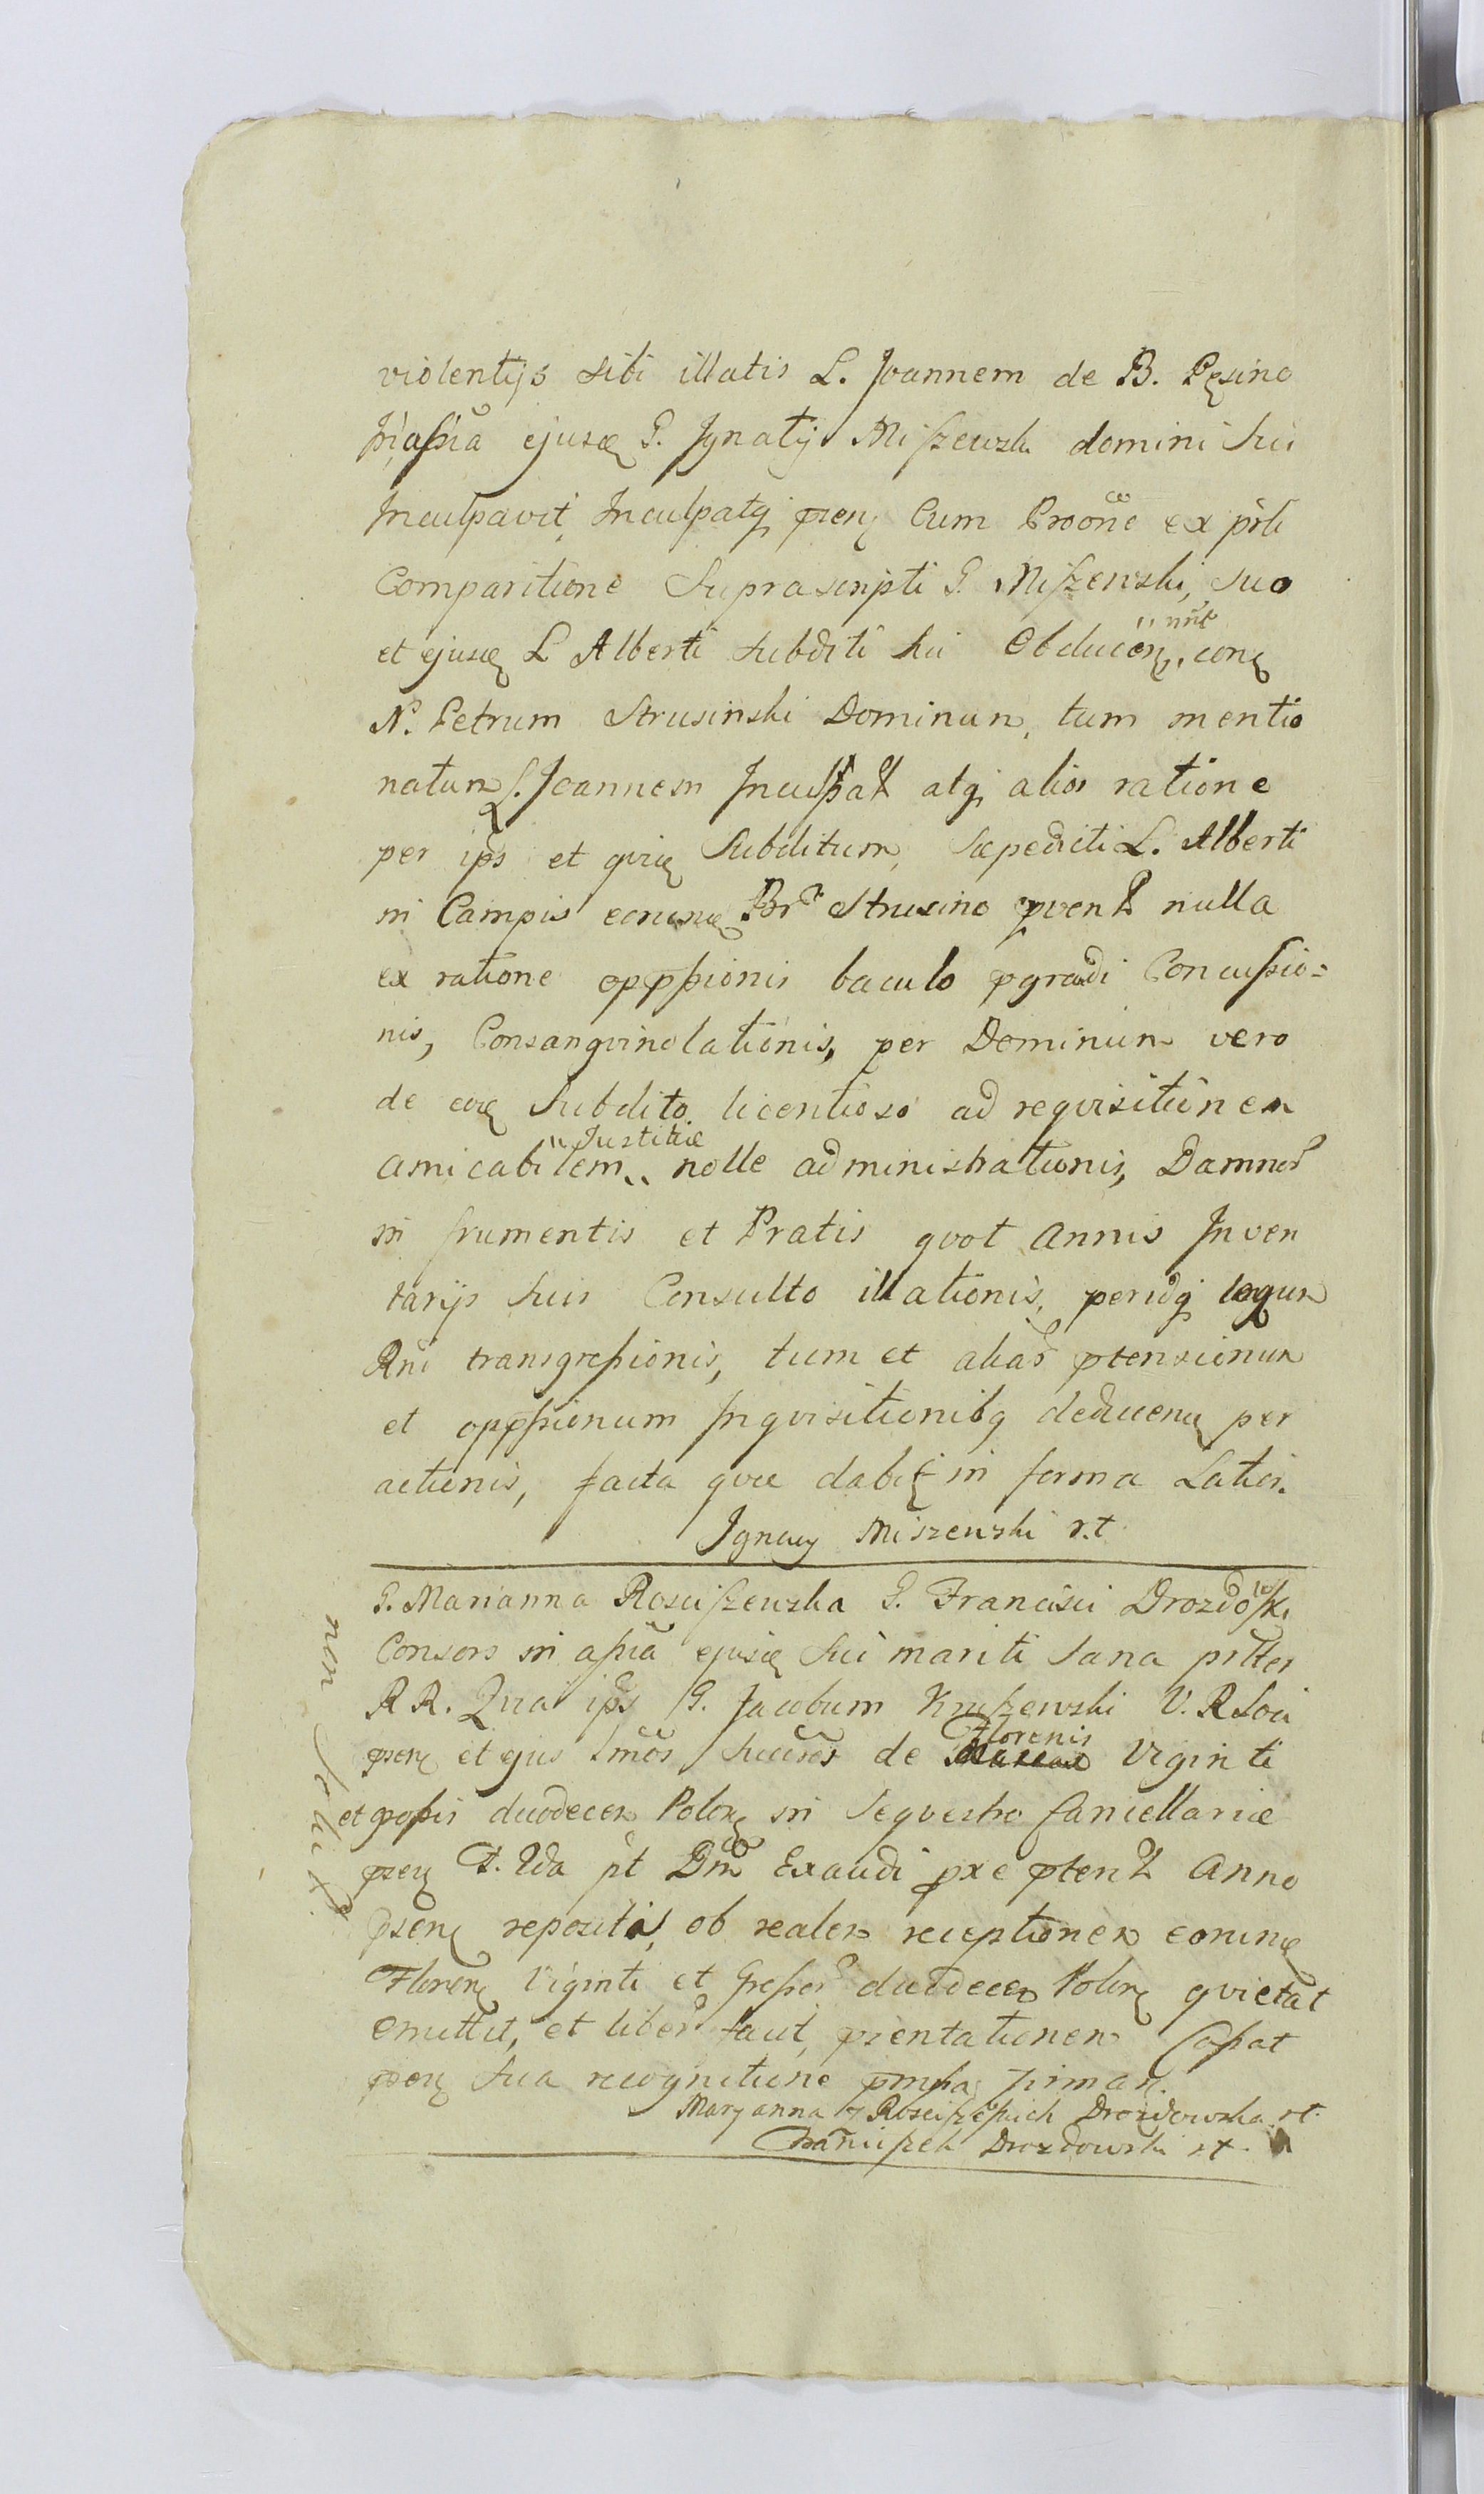 violentijs sibi illatis L. Joannem de B. Pęsino
ejusd G. Ignatij Miszewski domini sui
Inculpavit, Inculpatq̨ pten Cum Prõone ex prsti
Comparitione Suprascripti G. Miszewski, suo
et ejusd L Alberti Subditi sui Obducen, nnẽ cone
N. Petrum Strusinski Dominun, tum mentio
natum L. Joannem Inculpat atq̨ alios ratione
per ips et Subditum, Sæpedicti L. Alberti
in Campis eorund Br̃ Strusino pvent nulla
ex ratione oppssionis baculo pgrandi Concussio=
nis, Consangvinolationis, per Dominun vero
de eod Subdito licentioso ad reqvisitionem
amicabilem Justitiæ nolle administrationis, Damnor
in frumentis et Pratis qvot annis Inven
tarijs suis Consulto illationis, peridq̨ legum
Rni transgressionis, tum et aliar ptensionum
et oppssionum Inqvisitionibq̨ deducend per
actionis, facta qvæ dabit in forma Latiori.
Ignacy Miszewski r.t
G. Marianna Rosciszewska G. Francisci Drozdowski
Consors in assia ejusd sui mariti sana pritter
RR. Qvai ips G. Jacobum Kruszewski V. R Soci
psene et ejus smos succres de Florenis Viginti
et grossis duodecem Polon in Seqvestro Cancellariæ
psen F. 2da pt Dnm Exaudi pxe ptent Anno
psen repositis, ob realem receptionem eorund
Floren Viginti et Grossor duodecem Polon qvietat
emittit, et liber facit, psentationem Cassat
psen sua recognitione pmissa firman.
Maryanna z Rosciszewskich Drozdowska rt.
Franciszek Drozdowski rt.
non solut